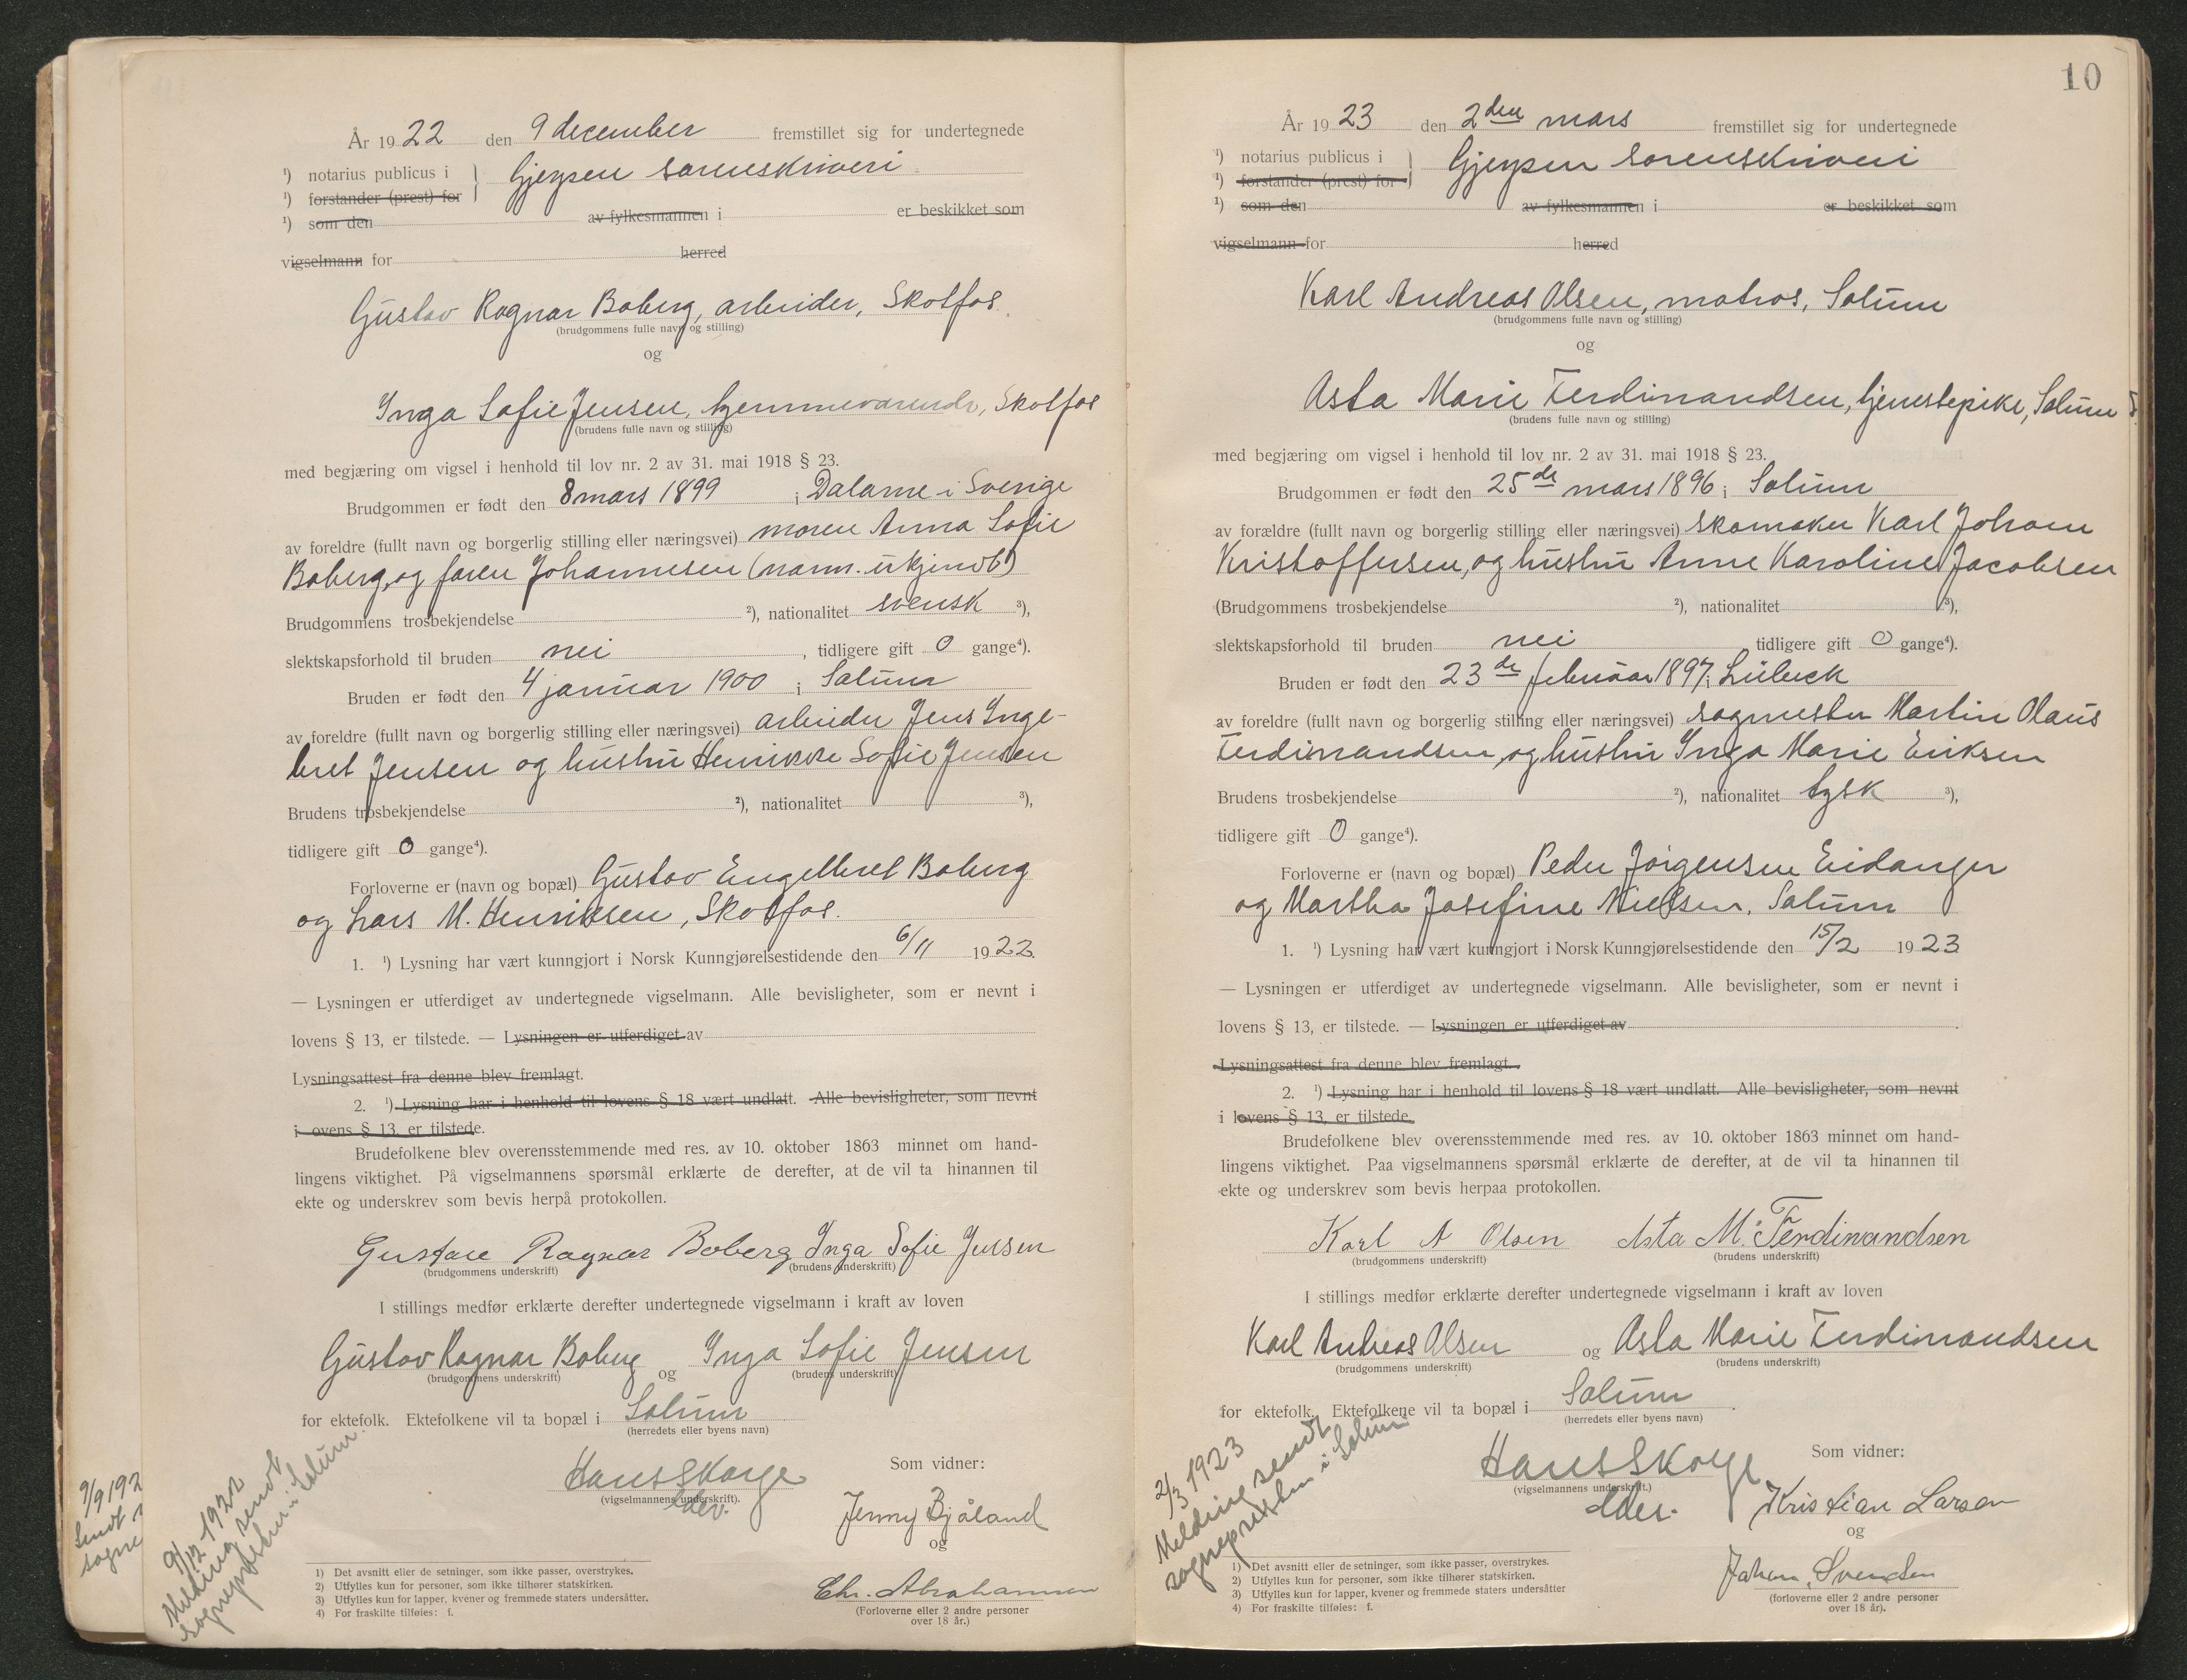 År 1922 den 9 december fremstillet sig for undertegnede
¹) notarius publicus i } Gjerpen sorenskriveri
¹) forstander (prest) for
¹) som den av fylkesmannen i er beskikket som
vigselmann for herred
Gustav Ragnar Boberg, arbeider, Skotfos.
(brudgommens fulle navn og stilling)
og
Inga Sofie Jensen, hjemmeværende, Skotfos
(brudens fulle navn og stilling)
med begjæring om vigsel i henhold til lov nr. 2 av 31. mai 1918 § 23.
Brudgommen er født den 8 mars 1899 i Dalarne i Sverige
av foreldre (fullt navn og borgerlig stilling eller næringsvei) moren Anna Sofie
Boberg, og faren Johannesen (navn ukjendt)
Brudgommens trosbekjendelse ²), nationalitet svensk ³),
slektskapsforhold til bruden nei , tidligere gift 0 gange⁴).
Bruden er født den 4 januar 1900 i Solum
av foreldre (fullt navn og borgerlig stilling eller næringsvei) arbeider Jens Inge-
bret Jensen og hustru Henrikke Sofie Jensen
Brudens trosbekjendelse ²), nationalitet ³),
tidligere gift 0 gange⁴).
Forloverne er (navn og bopæl) Gustav Engelbret Boberg
og Lars M. Henriksen, Skotfos.
1. ¹) Lysning har vært kunngjort i Norsk Kunngjørelsestidende den 6/11 1922.
— Lysningen er utferdiget av undertegnede vigselmann. Alle bevisligheter, som er nevnt i
lovens § 13, er tilstede. — Lysningen er utferdiget av
Lysningsattest fra denne blev fremlagt.
2. ¹) Lysning har i henhold til lovens § 18 vært undlatt. Alle bevisligheter, som nevnt
i ovens § 13, er tilstede.
Brudefolkene blev overensstemmende med res. av 10. oktober 1863 minnet om hand-
lingens viktighet. På vigselmannens spørsmål erklærte de derefter, at de vil ta hinannen til
ekte og underskrev som bevis herpå protokollen.
Gustav Ragnar Boberg Inga Sofie Jensen
(brudgommens underskrift) (brudens underskrift)
I stillings medfør erklærte derefter undertegnede vigselmann i kraft av loven
Gustav Ragnar Boberg og Inga Sofie Jensen
(brudgommens underskrift) (brudens underskrift)
for ektefolk. Ektefolkene vil ta bopæl i Solum
(herredets eller byens navn)
Hans Skorge
(vigselmannens underskrift).
Som vidner:
Jenny Bjåland
og
Chr. Abrahamsen
(Forloverne eller 2 andre personer
over 18 år.)
9/12 1922
Melding sendt
sognepresten i Solum.
9/9 192
Sendt
sogne
1) Det avsnitt eller de setninger, som ikke passer, overstrykes.
2) Utfylles kun for personer, som ikke tilhører statskirken.
3) Utfylles kun for lapper, kvener og fremmede staters undersåtter.
4) For fraskilte tilføies: f.
10
År 1923 den 2den mars fremstillet sig for undertegnede
¹) notarius publicus i } Gjerpen sorenskriveri
¹) forstander (prest) for
¹) som den av fylkesmannen i er beskikket som
vigselmann for herred
Karl Andreas Olsen, matros, Solum
(brudgommens fulle navn og stilling)
og
Asta Marie Ferdinandsen, tjenestepike, Solum
(brudens fulle navn og stilling)
med begjæring om vigsel i henhold til lov nr. 2 av 31. mai 1918 § 23.
Brudgommen er født den 25de mars 1896 i Solum
av forældre (fullt navn og borgerlig stilling eller næringsvei) skomaker Karl Johan
Kristoffersen, og hustru Anne Karoline Jacobsen
(Brudgommens trosbekjendelse ²), nationalitet ³),
slektskapsforhold til bruden nei tidligere gift 0 gange⁴).
Bruden er født den 23de februar 1897 i Lübeck
av foreldre (fullt navn og borgerlig stilling eller næringsvei) sagmester Martin Olaus
Ferdinandsen, og hustru Inga Marie Eriksen
Brudens trosbekjendelse ²), nationalitet tysk ³),
tidligere gift 0 gange⁴).
Forloverne er (navn og bopæl) Peder Jørgensen Eidanger
og Martha Josefine Nielsen, Solum
1. ¹) Lysning har vært kunngjort i Norsk Kunngjørelsestidende den 15/2 1923
— Lysningen er utferdiget av undertegnede vigselmann. Alle bevisligheter, som er nevnt i
lovens § 13, er tilstede. — Lysningen er utferdiget av
Lysningsattest fra denne blev fremlagt.
2. ¹) Lysning har i henhold til lovens § 18 vært undlatt. Alle bevisligheter, som nevnt
i lovens § 13, er tilstede.
Brudefolkene blev overensstemmende med res. av 10. oktober 1863 minnet om hand-
lingens viktighet. Paa vigselmannens spørsmål erklærte de derefter, at de vil ta hinannen til
ekte og underskrev som bevis herpaa protokollen.
Karl A Olsen Asta M. Ferdinandsen
(brudgommens underskrift) (brudens underskrift)
I stillings medfør erklærte derefter undertegnede vigselmann i kraft av loven
Karl Andreas Olsen og Asta Marie Ferdinandsen
(brudgommens underskrift) (brudens underskrift)
for ektefolk. Ektefolkene vil ta bopæl i Solum
(herredets eller byens navn)
Hans Skorge
(vigselmannens underskrift.)
Som vidner:
Kristian Larsen
og
Johan Svendsen
(forloverne eller 2 andre personer
over 18 år).
2/3 1923
Melding sendt
sognepresten i Solum.
1) Det avsnitt eller de setninger, som ikke passer, overstrykes.
2) Utfylles kun for personer, som ikke tilhører statskirken.
3) Utfylles kun for lapper, kvener og fremmede staters undersåtter
4) For fraskilte tilføies: f.